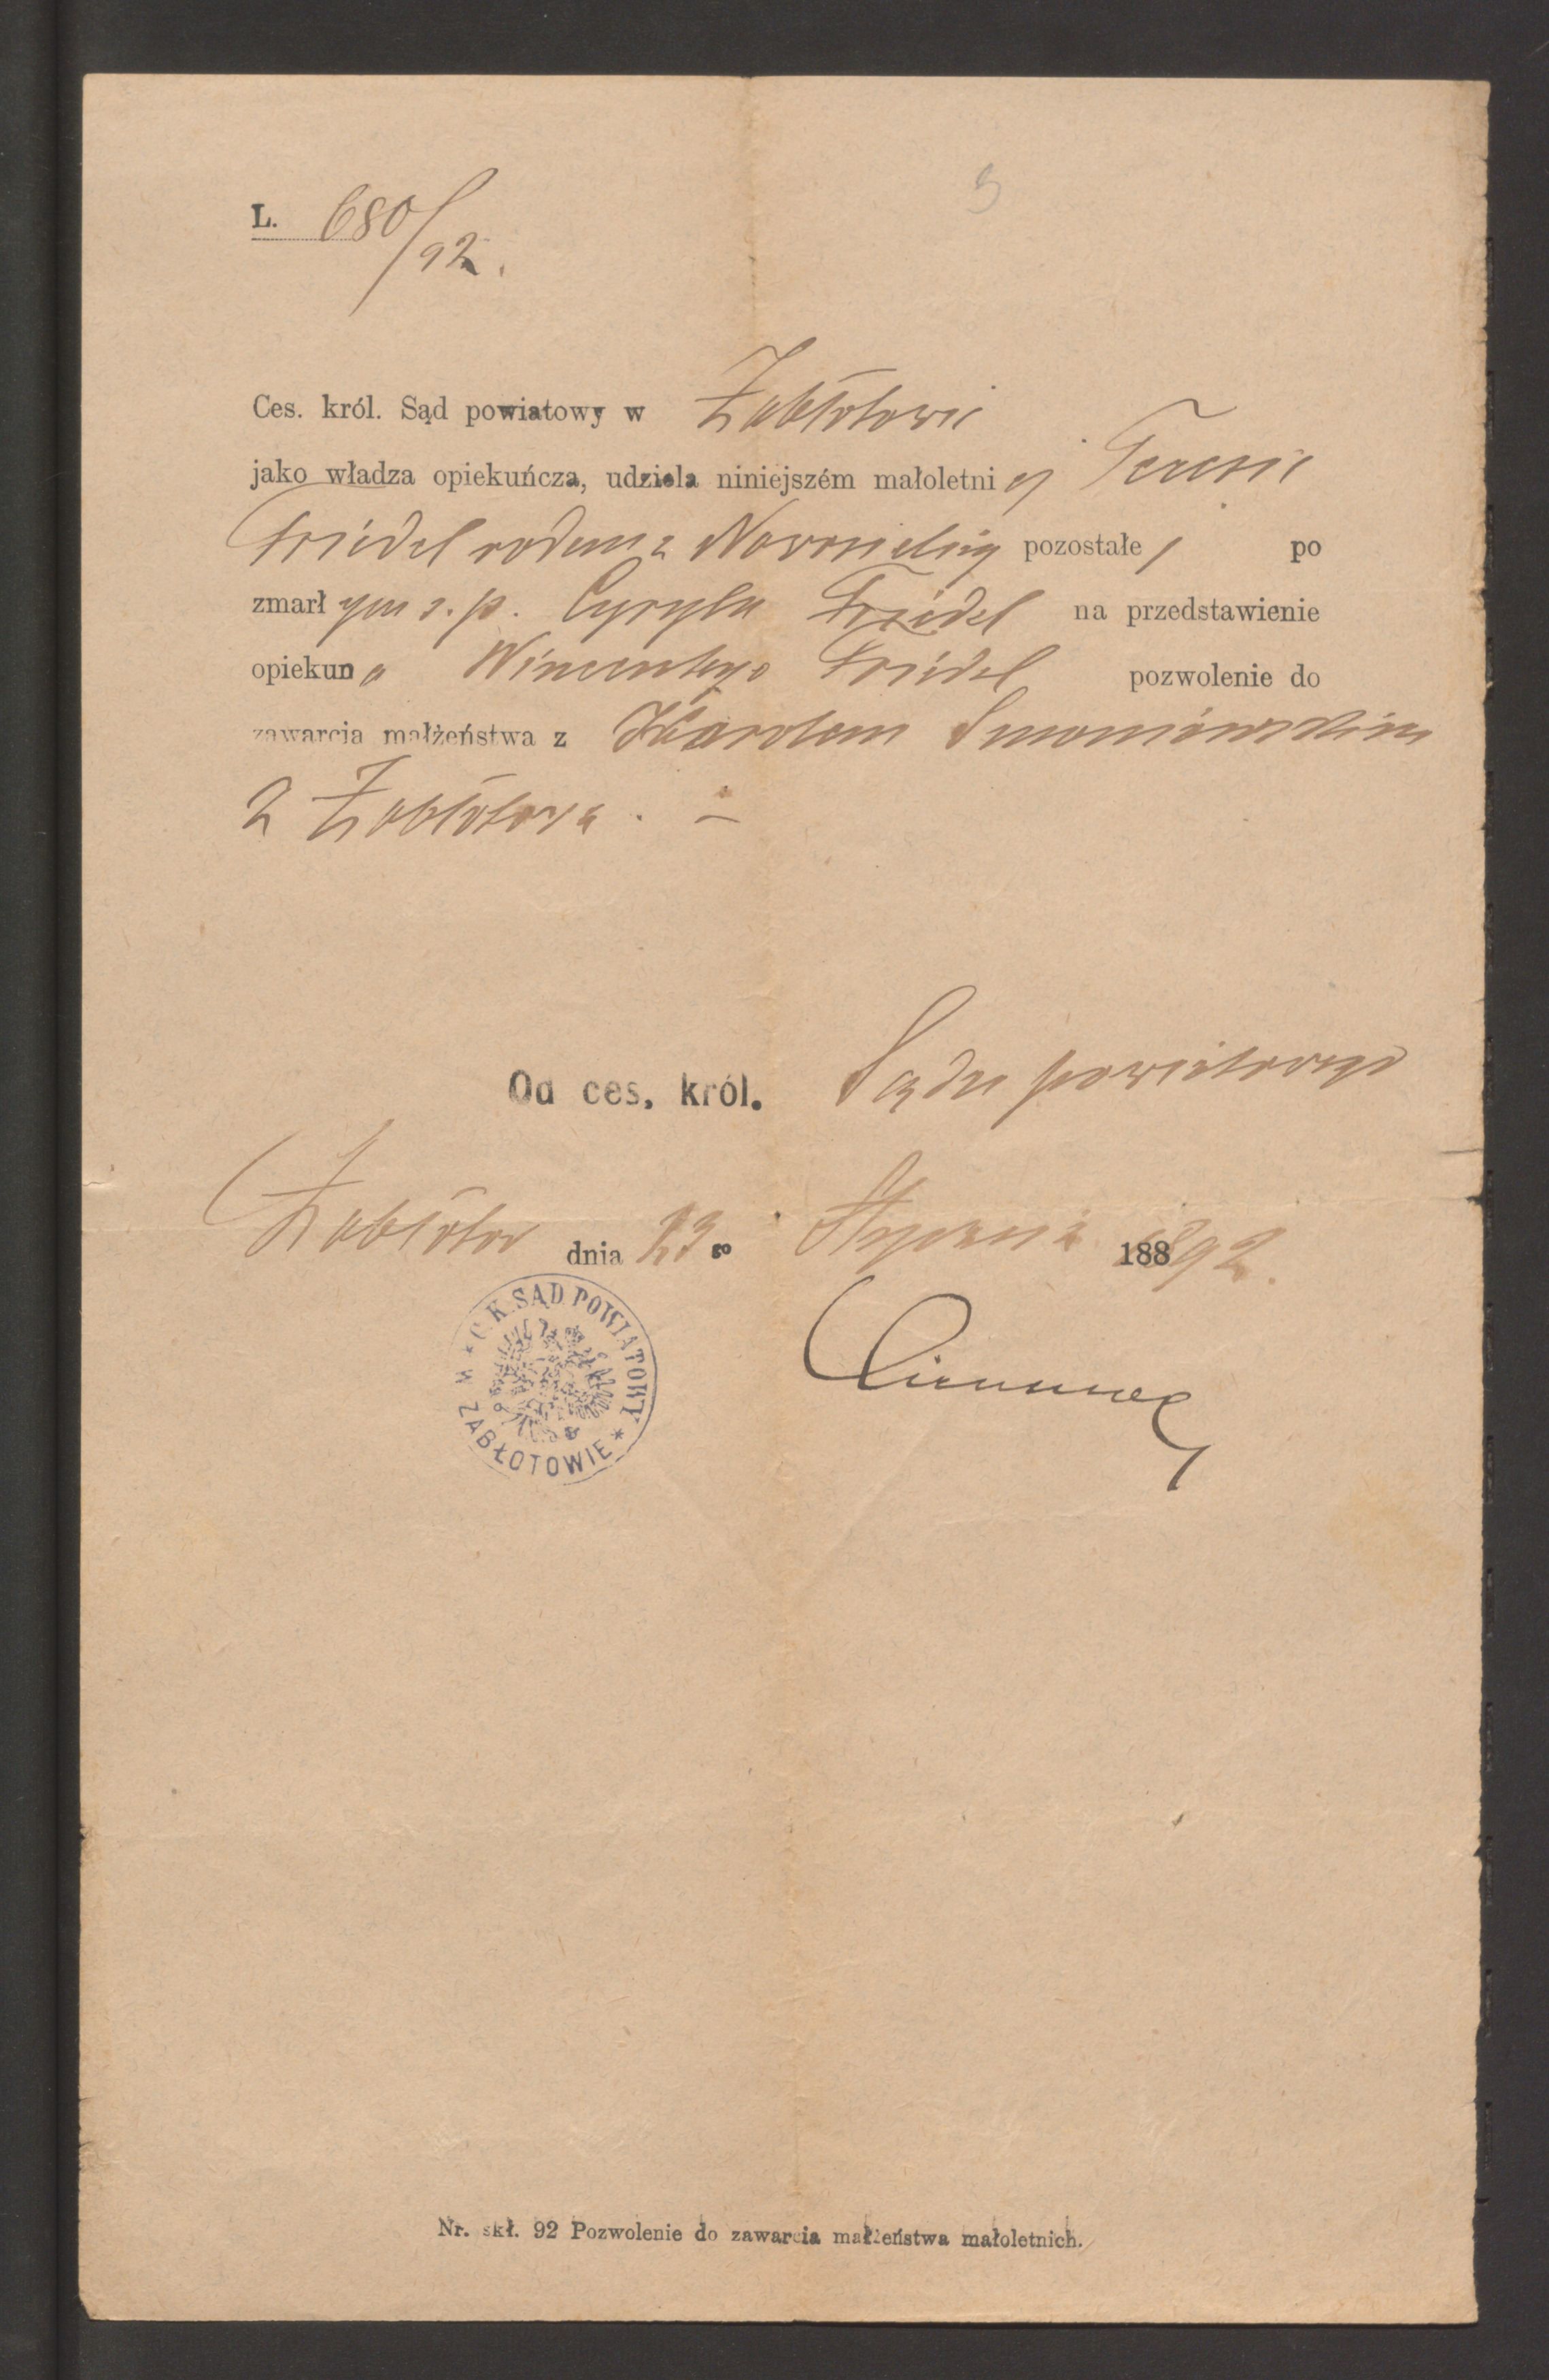 L. 680/92.
Ces. król. Sąd powiatowy w Zabłotowie
jako władza opiekuńcza, udziela niniejszém małoletniej Teresie
Friedel rodem z pozostałej po
zmarłym ś. p. Cyrylu Friedel na przedstawienie
opiekuna Wincentego Friedel pozwolenie do
zawarcia małżeństwa z Karolem
z Zabłotowa. –
Od ces. król. Sądu powiatowego
Zabłotów dnia 23go Stycznia 188 892.
C. K. SĄD POWIATOWY
W ZABŁOTOWIE
Nr. skł. 92 Pozwolenie do zawarcia małżeństwa małoletnich.